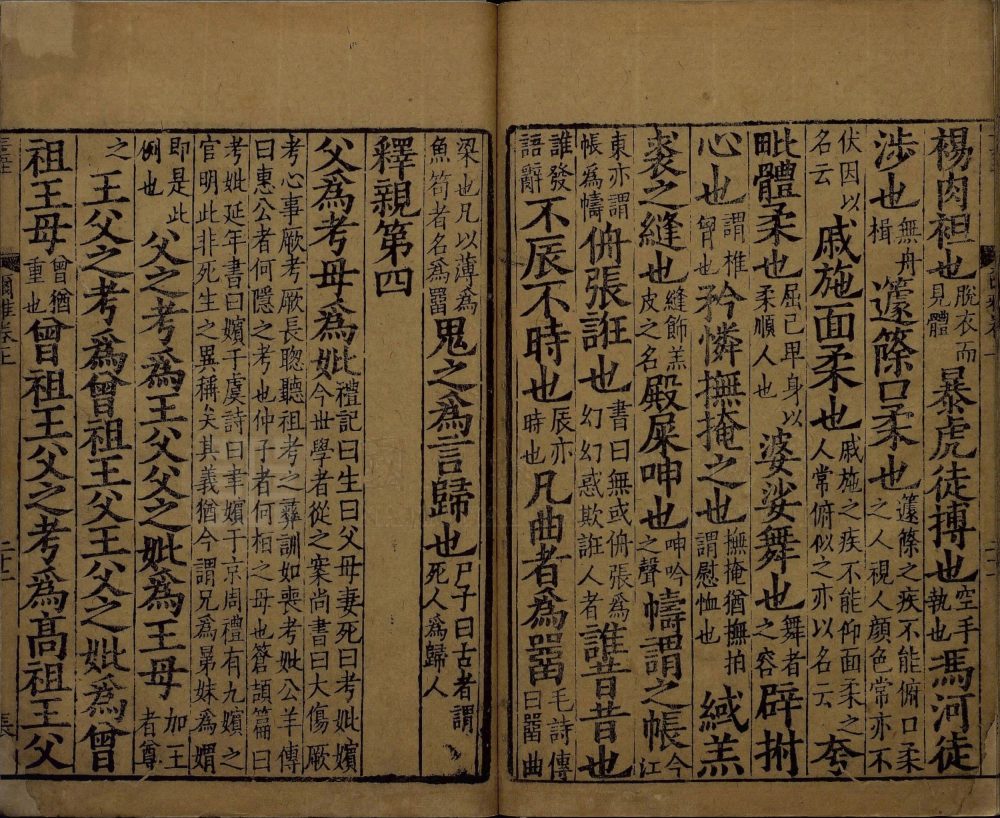 裼肉袒也脫衣而見體暴虎徒搏也空手執也馮河徒
涉也無舟楫籧篨口柔也籧篨之疾不能俯口柔之人視人顔色常亦不
伏因以名云戚施面柔也戚施之疾不能仰面柔之人常俯似之亦以名云夸
毗體柔也屈己卑身以柔順人也婆娑舞也舞者之容辟拊
心也謂椎胷也矜憐撫掩之也撫掩猶撫拍謂慰恤也緎羔
裘之縫也縫飾羔皮之名殿屎呻也呻吟之聲幬謂之帳今江
東亦謂帳爲幬侜張誑也書曰無或侜張爲幻幻惑欺誑人者誰昔昔也
誰發語辭不辰不時也辰亦時也凡曲者爲罶毛詩傳曰罶曲
梁也凡以薄爲魚笱者名爲罶鬼之爲言歸也尸子曰古者謂死人爲歸人
釋親第四
父爲考母爲妣禮記曰生曰父母妻死曰考妣嬪今世學者從之案尚書曰大傷厥
考心事厥考厥長聦聽祖考之彝訓如喪考妣公羊傳曰惠公者何隱之考也仲子者何桓之母也蒼頡篇曰
考妣延年書曰嬪于虞詩曰聿嬪于京周禮有九嬪之官明此非死生之異稱矣其義猶今謂兄爲晜妹爲媦
即是此例也父之考爲王父父之妣爲王母加王者尊
之王父之考爲曾祖王父王父之妣爲曾
祖王母曾猶重也曾祖王父之考爲高祖王父